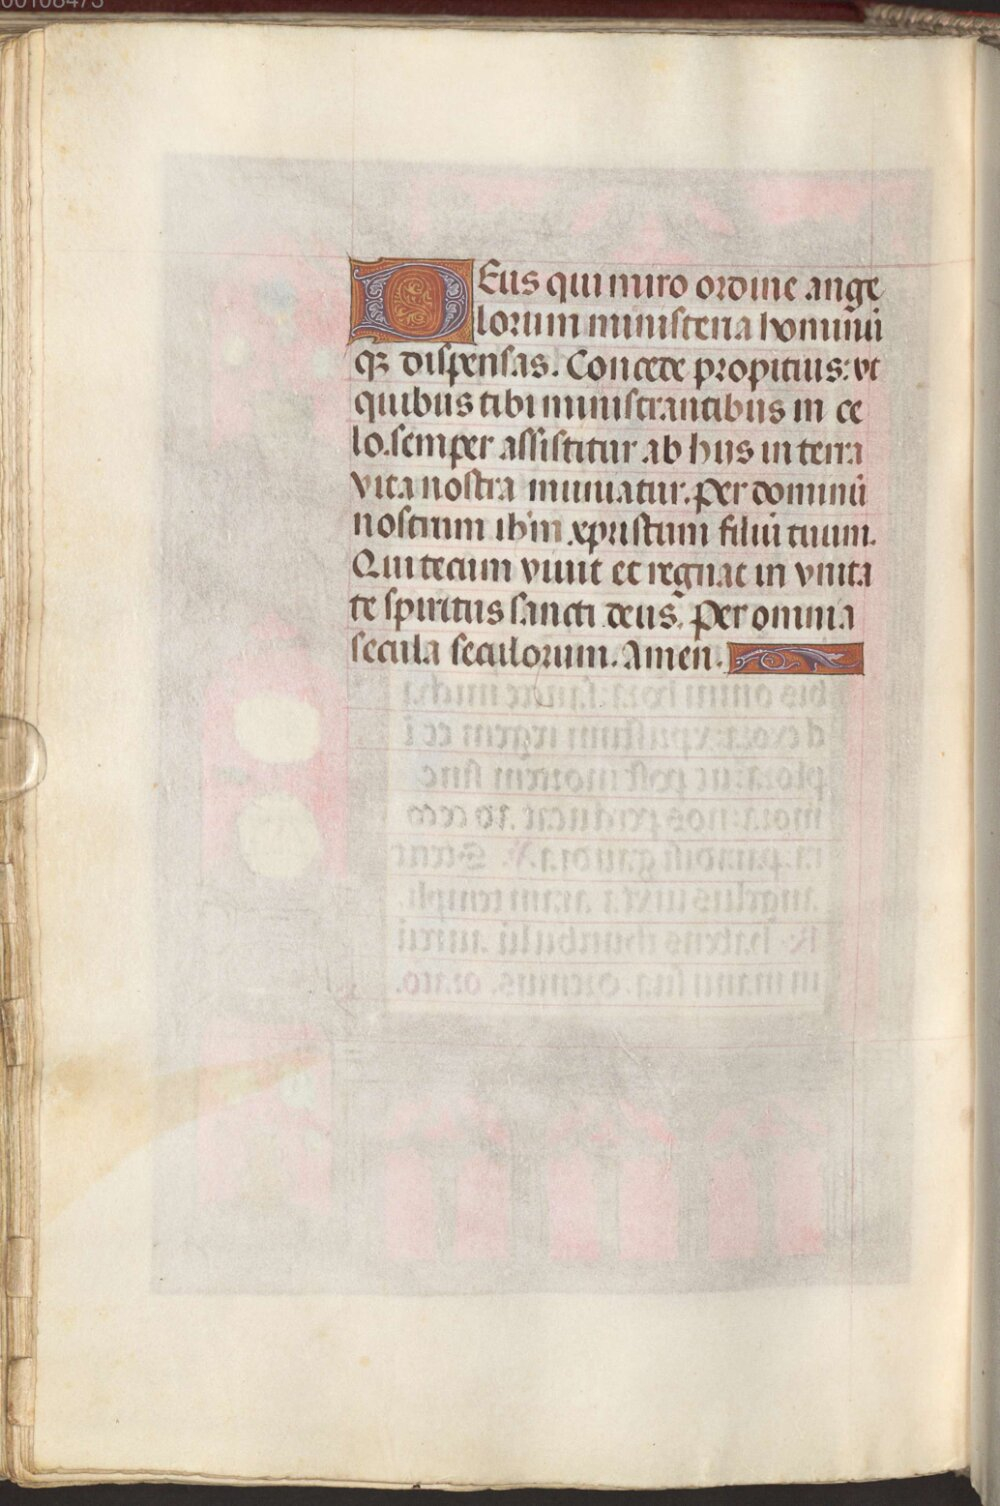 DEus qui miro ordine ange
lorum ministeria hominū
q₃ dispensas. Concede propitius: vt
quibus tibi ministrantibus in ce
lo. semper assistitur ab hiis in terra
vita nostra muniatur. Per dominū
nostrum ihm̄ xpristum filiū tuum.
Qui tecum viuit et regnat in vnita
te spiritus sancti deus. Per omnia
secula seculorum. Amen.